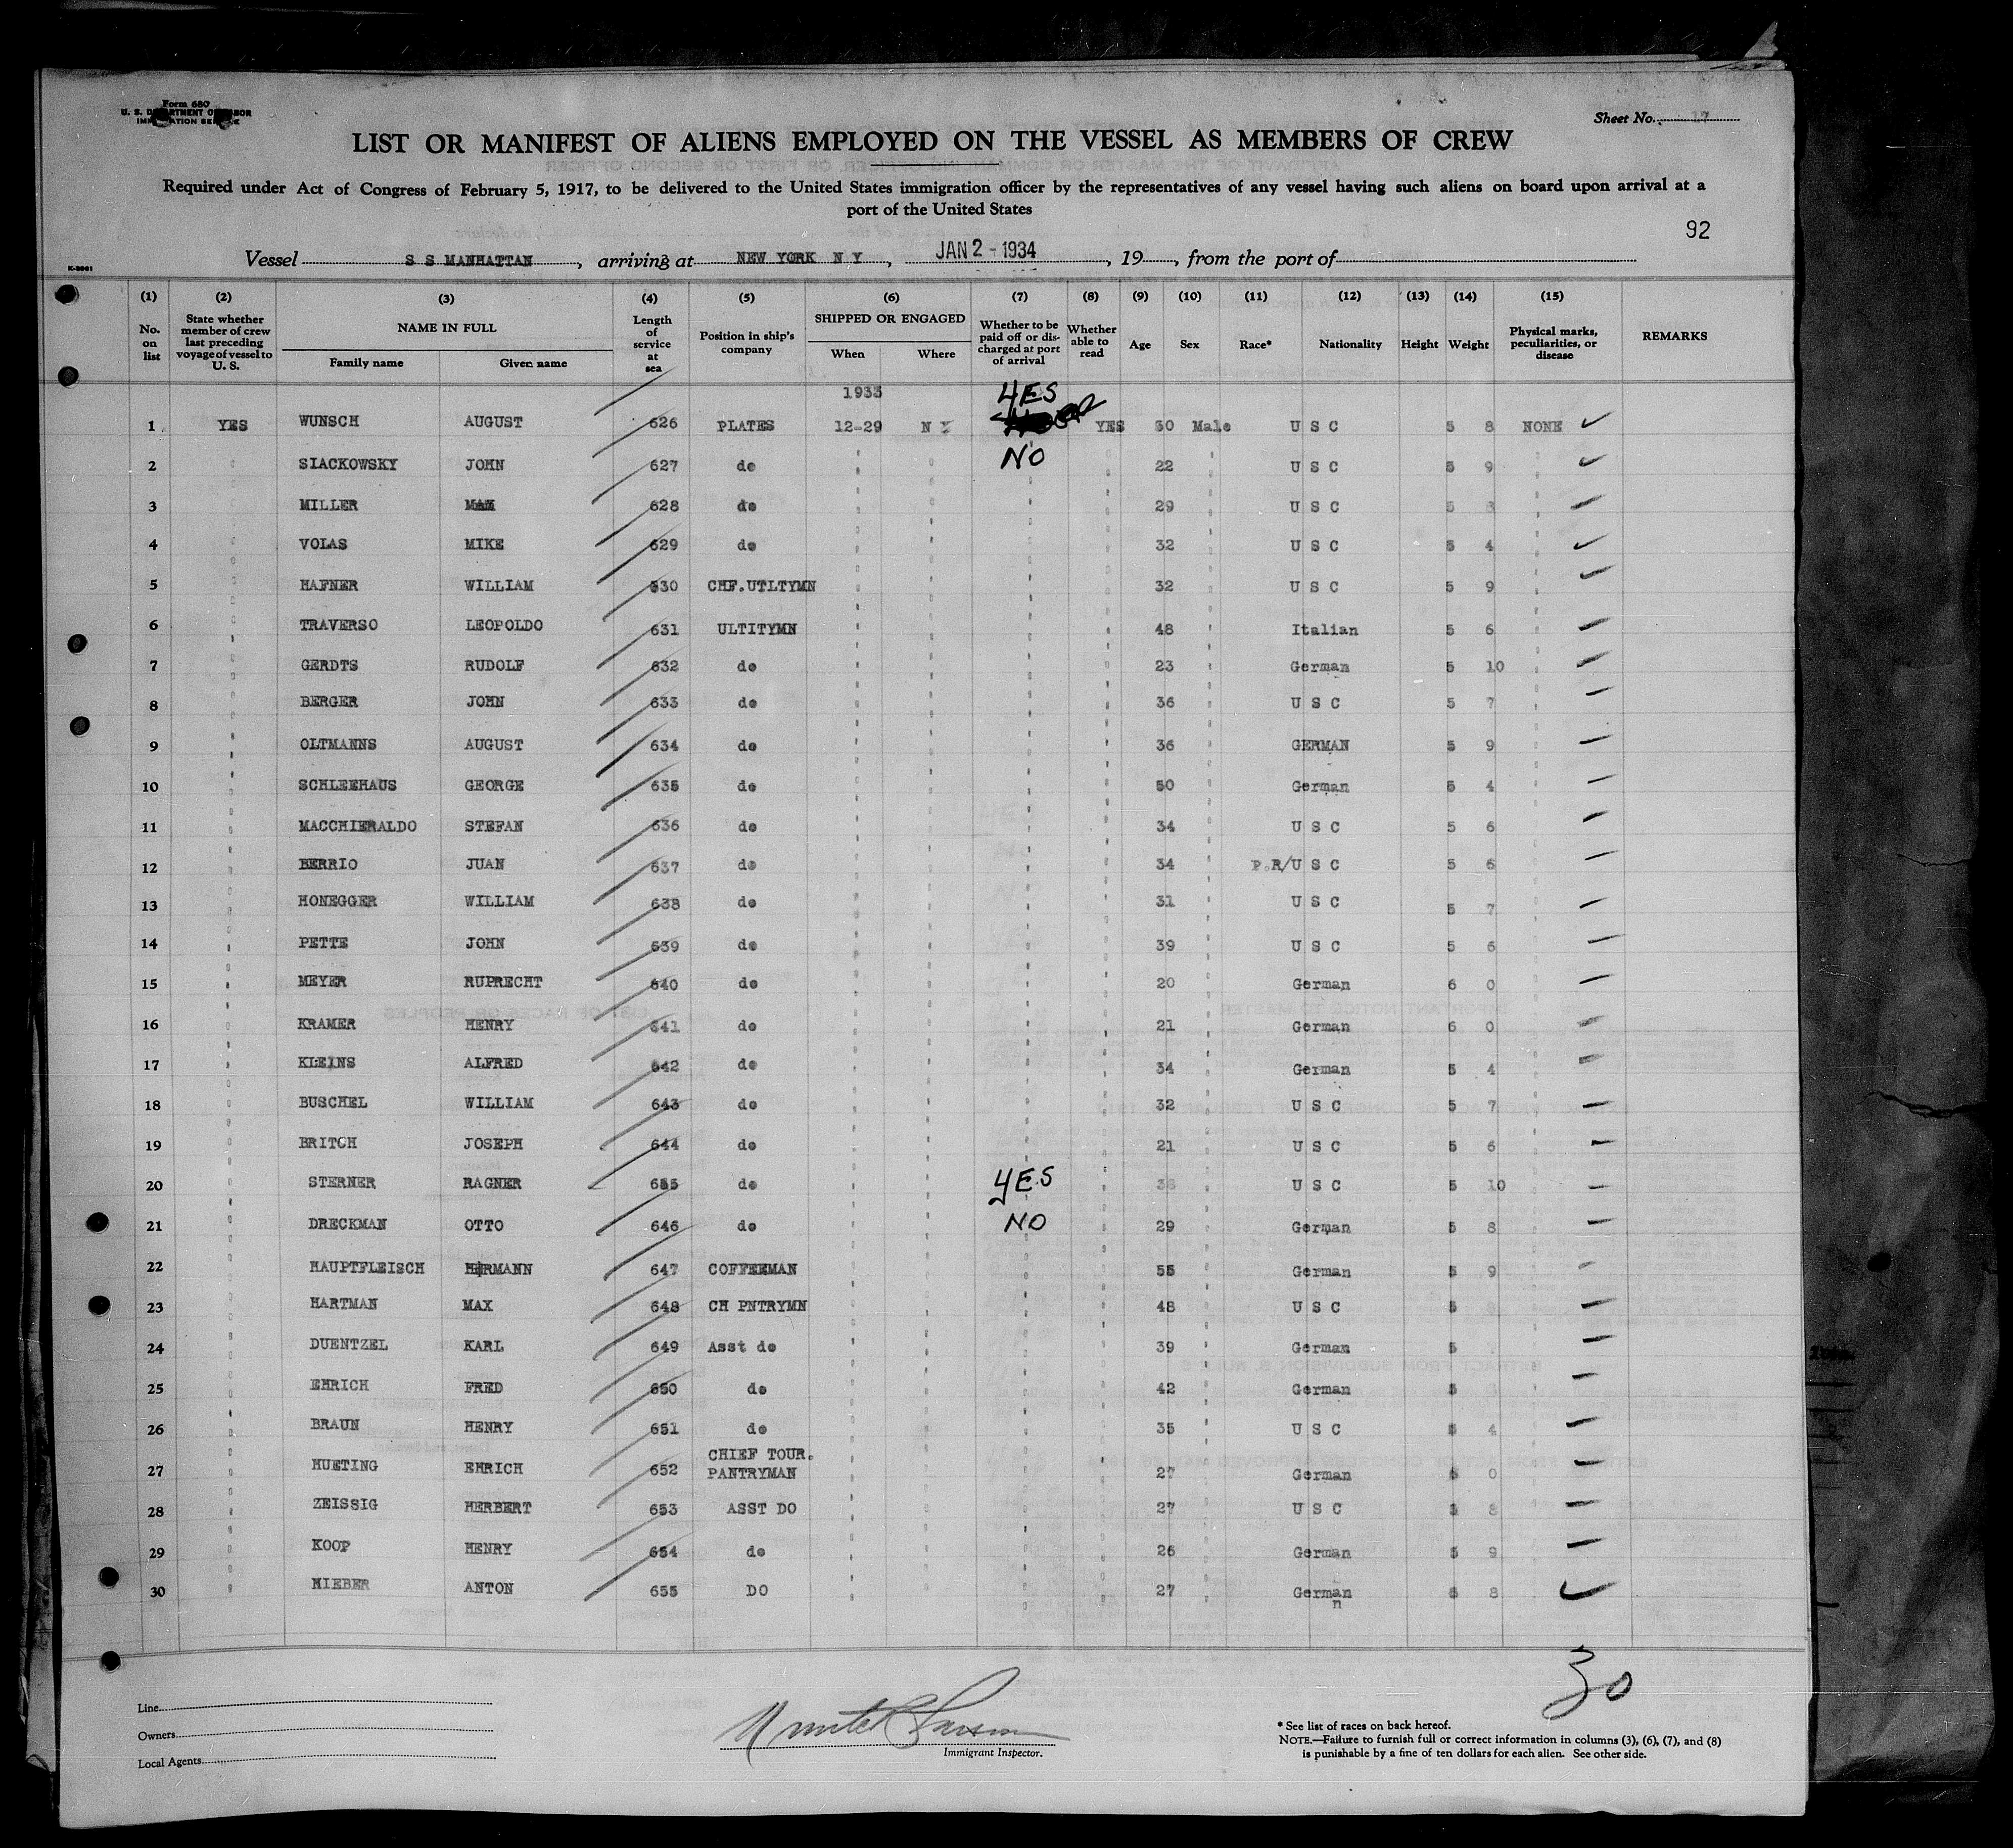 Form 680
U. S. DEPARTMENT OF LABOR
IMMIGRATION SERVICE
Sheet No. 17
LIST OR MANIFEST OF ALIENS EMPLOYED ON THE VESSEL AS MEMBERS OF CREW
Required under Act of Congress of February 5, 1917, to be delivered to the United States immigration officer by the representatives of any vessel having such aliens on board upon arrival at a
port of the United States
92
Vessel S S MANHATTAN, arriving at NEW YORK N Y, JAN 2 - 1934, 19, from the port of
(1) (2) (3) (4) (5) (6) (7) (8) (9) (10) (11) (12) (13) (14) (15)
No. on list State whether member of crew last preceding voyage of vessel to U. S. NAME IN FULL Family name Given name Length of service at sea Position in ship's company SHIPPED OR ENGAGED When Where Whether to be paid off or discharged at port of arrival Whether able to read Age Sex Race* Nationality Height Weight Physical marks, peculiarities, or disease REMARKS
1933 YES
1 YES WUNSCH AUGUST 626 PLATES 12-29 N Y YES 30 Male U S C 5 8 NONE
2 SIACKOWSKY JOHN 627 do NO 22 U S C 5 9
3 MILLER MAX 628 do 29 U S C 5 8
4 VOLAS MIKE 629 do 32 U S C 5 4
5 HAFNER WILLIAM 630 CHF.UTLTYMN 32 U S C 5 9
6 TRAVERSO LEOPOLDO 631 ULTITYMN 48 Italian 5 6
7 GERDTS RUDOLF 632 do 23 German 5 10
8 BERGER JOHN 633 do 36 U S C 5 7
9 OLTMANNS AUGUST 634 do 36 GERMAN 5 9
10 SCHLEEHAUS GEORGE 635 do 50 German 5 4
11 MACCHIERALDO STEFAN 636 do 34 U S C 5 6
12 BERRIO JUAN 637 do 34 P.R/U S C 5 6
13 HONEGGER WILLIAM 638 do 31 U S C 5 7
14 PETTE JOHN 639 do 39 U S C 5 6
15 MEYER RUPRECHT 640 do 20 German 6 0
16 KRAMER HENRY 641 do 21 German 6 0
17 KLEINS ALFRED 642 do 34 German 5 4
18 BUSCHEL WILLIAM 643 do 32 U S C 5 7
19 BRITCH JOSEPH 644 do 21 U S C 5 6
20 STERNER RAGNER 655 do YES 38 U S C 5 10
21 DRECKMAN OTTO 646 do NO 29 German 5 8
22 HAUPTFLEISCH HERMANN 647 COFFEEMAN 55 German 5 9
23 HARTMAN MAX 648 CH PNTRYMN 48 U S C 5
24 DUENTZEL KARL 649 Asst do 39 German 5
25 EHRICH FRED 650 do 42 German 5
26 BRAUN HENRY 651 do 35 U S C 5 4
27 HUETING EHRICH 652 CHIEF TOUR. PANTRYMAN 27 German 6 0
28 ZEISSIG HERBERT 653 ASST DO 27 U S C 5 8
29 KOOP HENRY 654 do 26 German 5 9
30 HIEBER ANTON 655 DO 27 German 5 8
n
30
Line
Owners
Local Agents
Immigrant Inspector.
* See list of races on back hereof.
NOTE.—Failure to furnish full or correct information in columns (3), (6), (7), and (8)
is punishable by a fine of ten dollars for each alien. See other side.